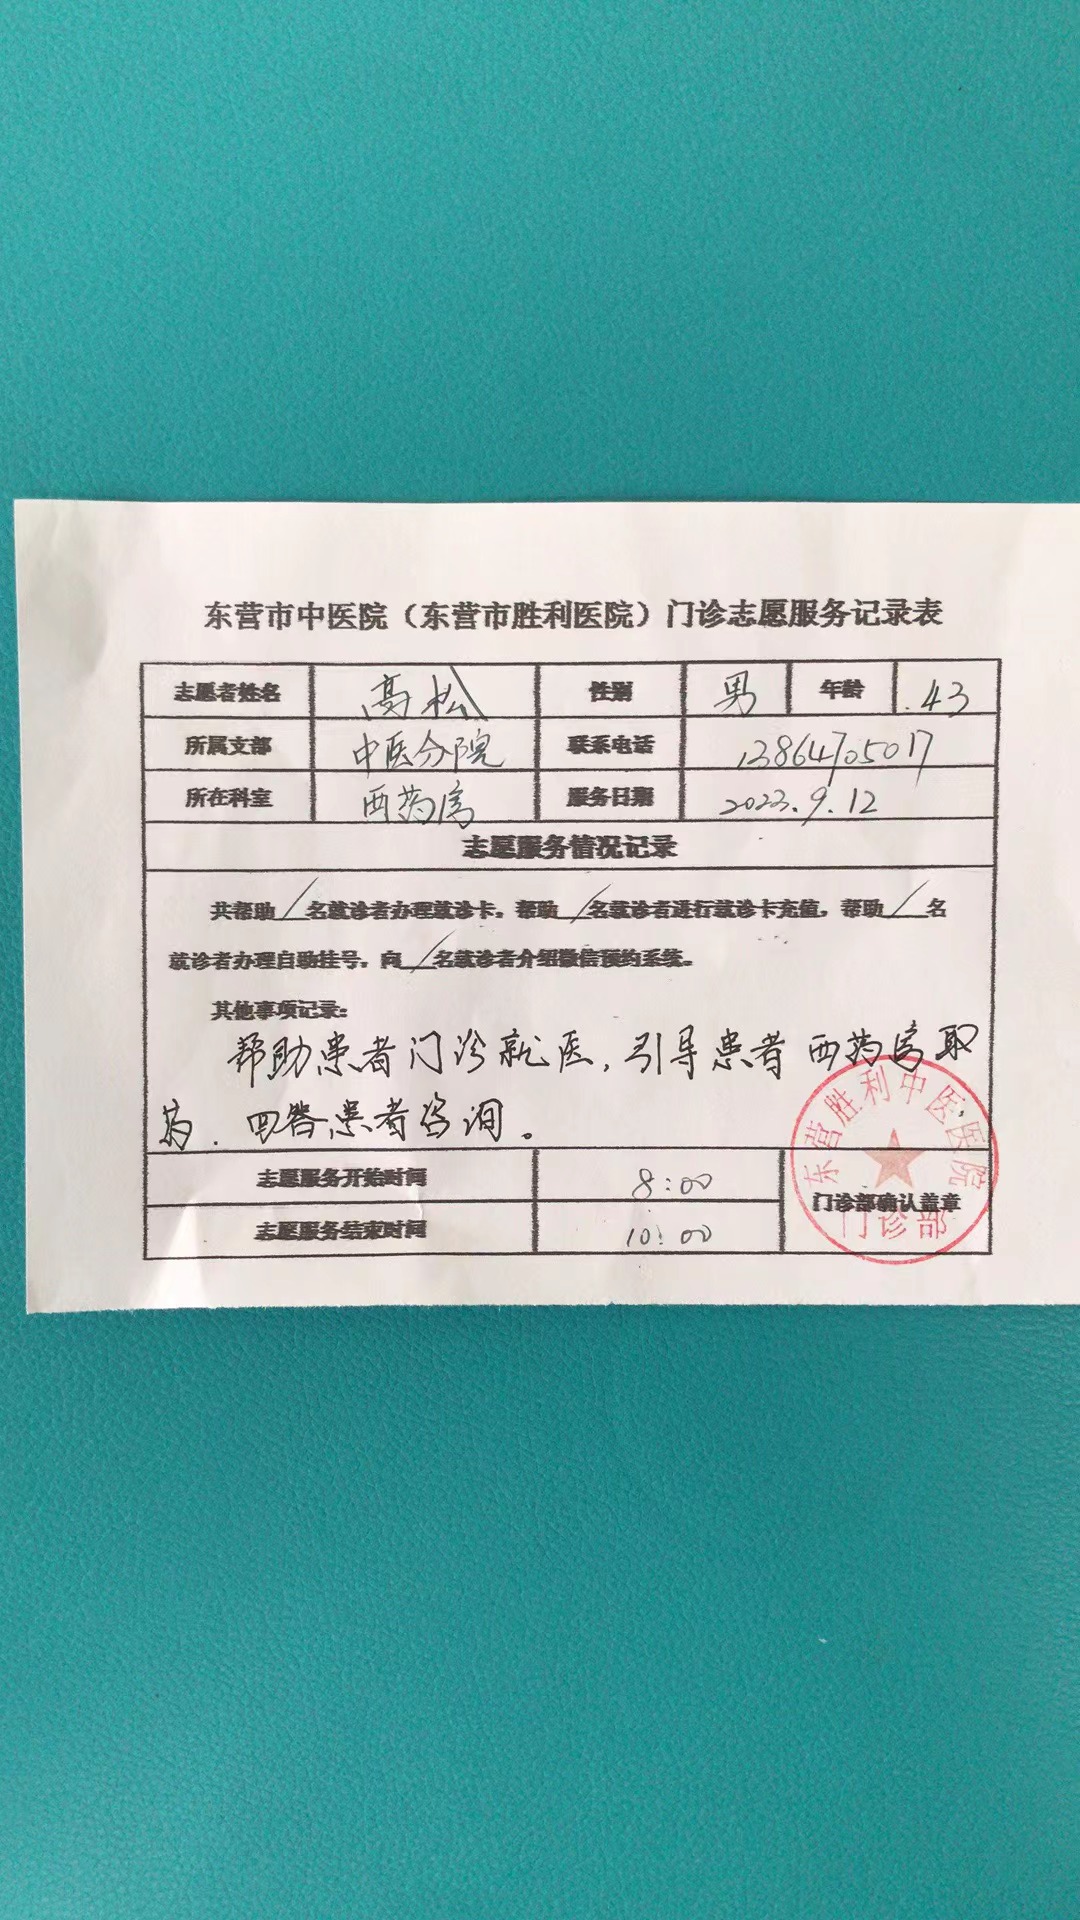 东营市中医院（东营市胜利医院）门诊志愿服务记录表
志愿者姓名 高松 性别 男 年龄 43
所属支部 中医分院 联系电话 13864705017
所在科室 西药房 服务日期 2023.9.12
志愿服务情况记录
共帮助/名就诊者办理就诊卡，帮助/名就诊者进行就诊卡充值，帮助/名
就诊者办理自助挂号，向/名就诊者介绍微信预约系统。
其他事项记录：
帮助患者门诊就医，引导患者西药房取
药．回答患者咨询。
志愿服务开始时间 8:00
志愿服务结束时间 10:00
门诊部确认盖章
东营胜利中医医院
门诊部